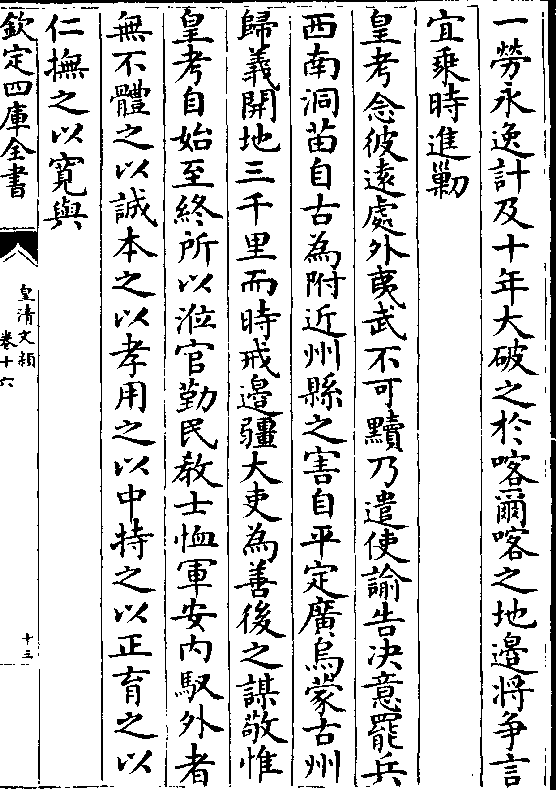 一勞永逸計及十年大破之於喀爾喀之地邉將爭言
宜乗時進勦
皇考念彼逺處外夷武不可黷乃遣使諭告決意罷兵
西南洞苗自古為附近州縣之害自平定廣烏蒙古州
歸義開地三千里而時戒邉疆大吏為善後之謀敬惟
皇考自始至終所以涖官勤民教士恤軍安内馭外者
無不體之以誠本之以孝用之以中持之以正育之以
仁撫之以寛與
欽定四庫全書
皇清文頴
卷十六
十三